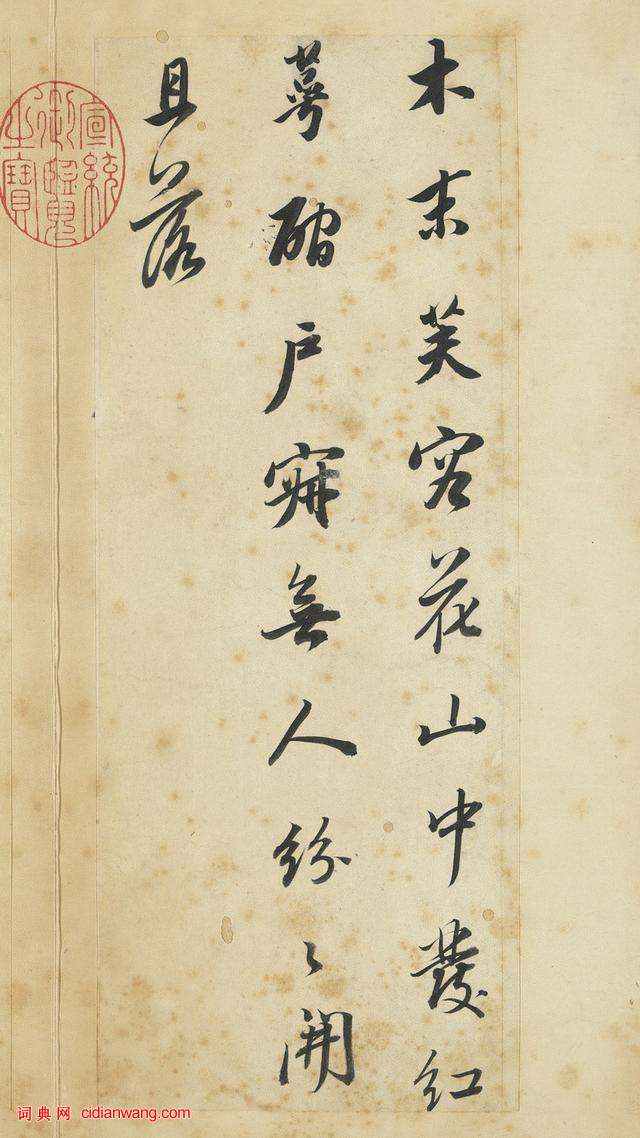 木末芙容花山中發紅
萼磵戶寂無人紛〻開
且落
宣統
御覽
之寶
词典网 cidianwang.com